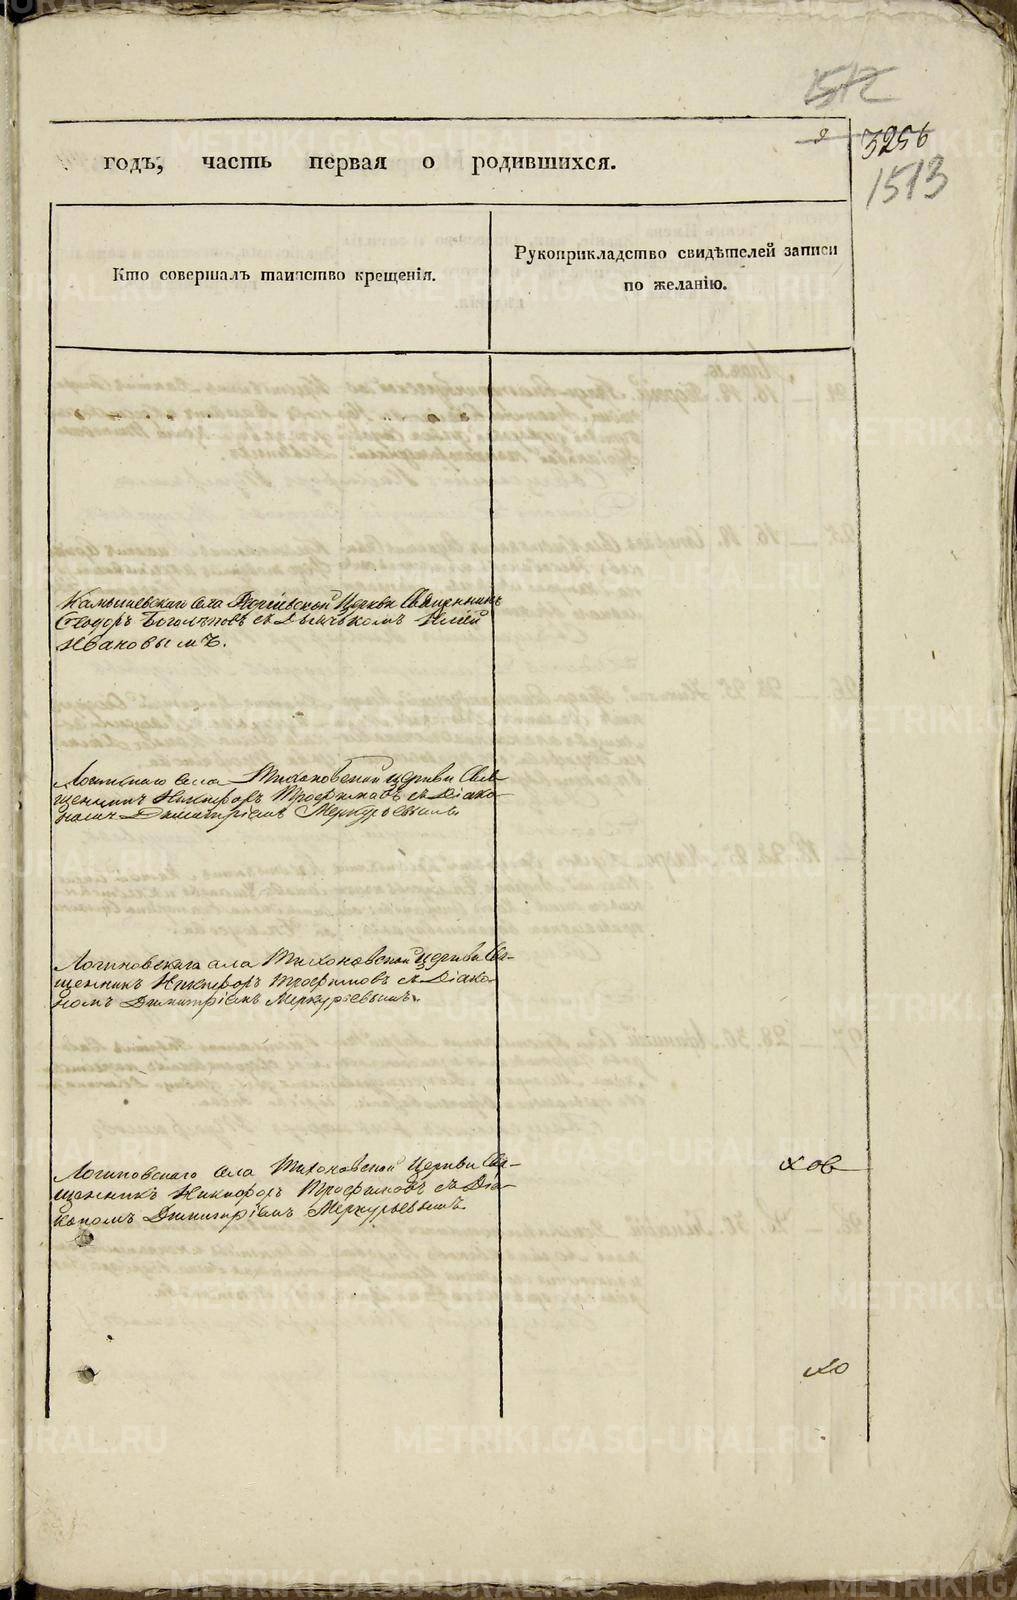 1512
3256
1513
годъ, часть первая о родившихся.
Кто совершалъ таинство крещенія.
Рукоприкладство свидѣтелей записи
по желанію.
Камышевскаго села Церкви Священникъ
Ѳеодоръ Боголѣповъ съ Дьячькомъ Иліей
Ивановымъ.
села Тихоновской церкви Свя-
щенникъ Никифоръ Трофимовъ съ Діако-
номъ Димитріемъ Меркурьевымъ.
Логиновскаго села Тихоновской Церкви Свя-
щенникъ Никифоръ Трофимовъ съ Діако-
номъ Димитріемъ Меркурьевымъ.
Логиновскаго села Тихоновской Церкви Свя-
щенникъ Никифоръ Трофимовъ съ Діа-
кономъ Димитріемъ Меркурьевымъ.
METRIKI.GASO-URAL.RU